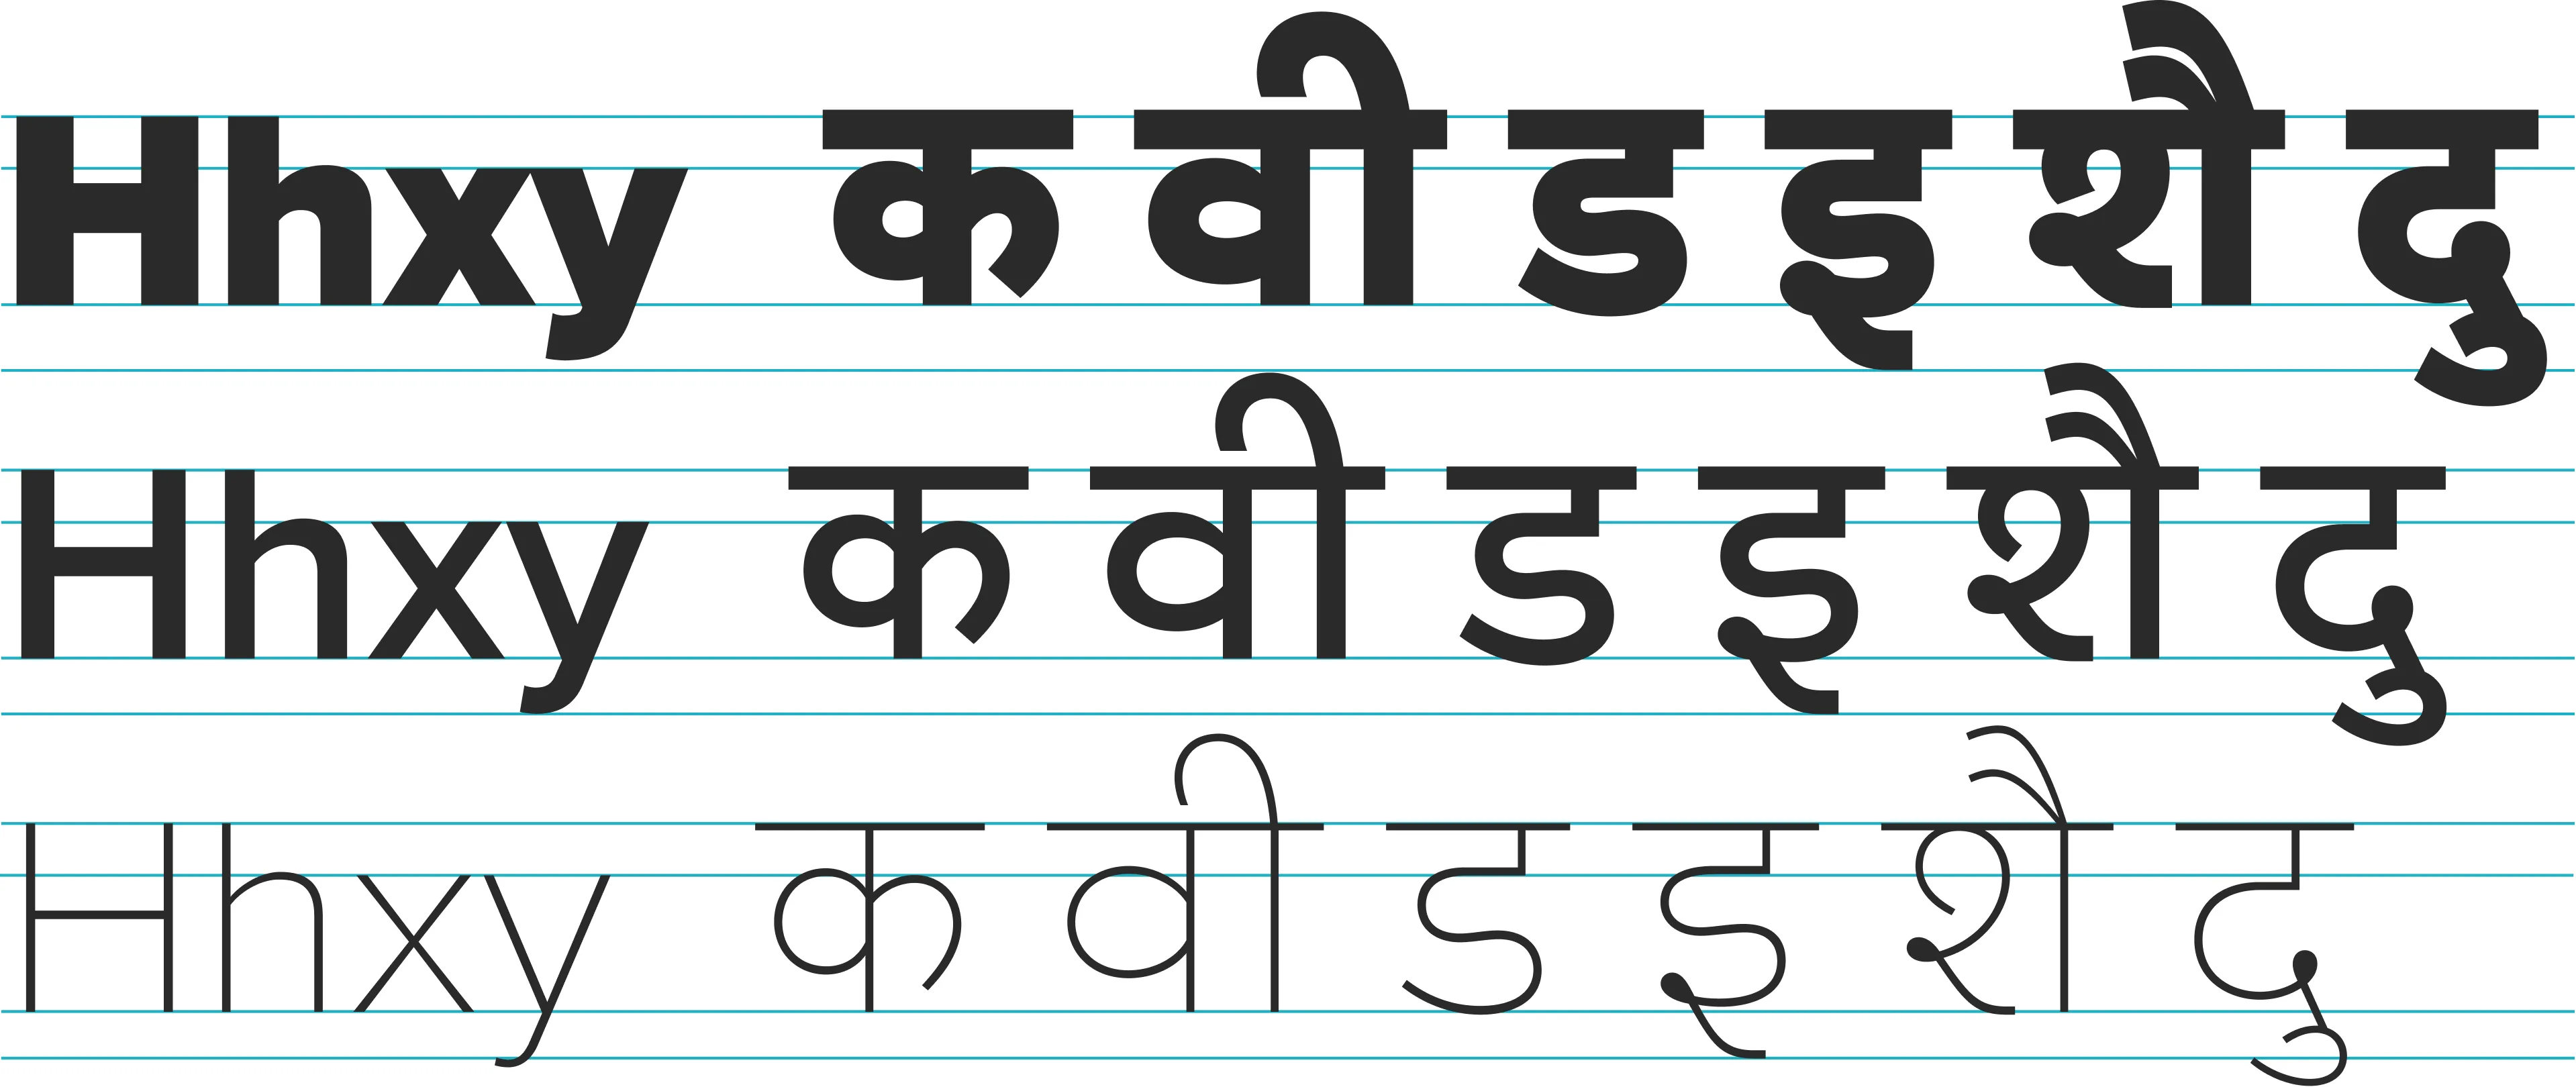 Hhxy क वी ड इ शौ दु
Hhxy क वी ड इ शौ दु
Hhxy क वी ड इ शौ दु